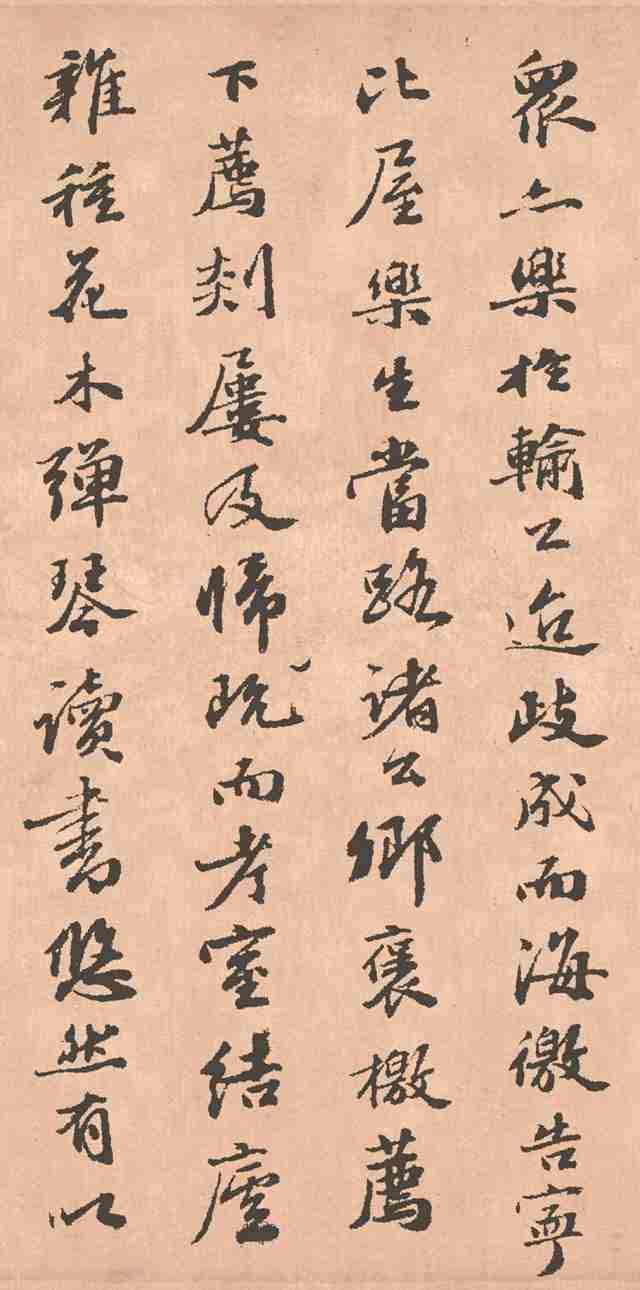 眾亦樂於輸工迨歧成而海徼告寧
比屋樂生當路諸公卿褒檄薦
下薦剡屢及歸既而考室結廬
雜種花木彈琴讀書悠然有以